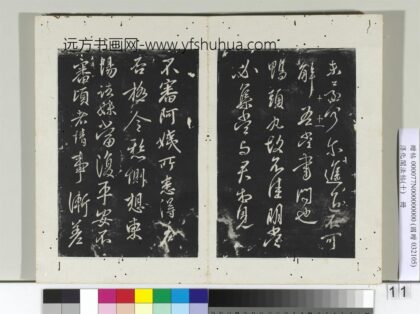 远方书画网-www.yfshuhua.com
進退不可
解吾當書問也
鴨頭丸故不佳明當
必集當與君相見
不審阿姨所患得
否極令惻想東
陽諸妹當復平安不
審頃者情事漸差
000077N000000000
032105
淳化閣法帖(十) 冊
11